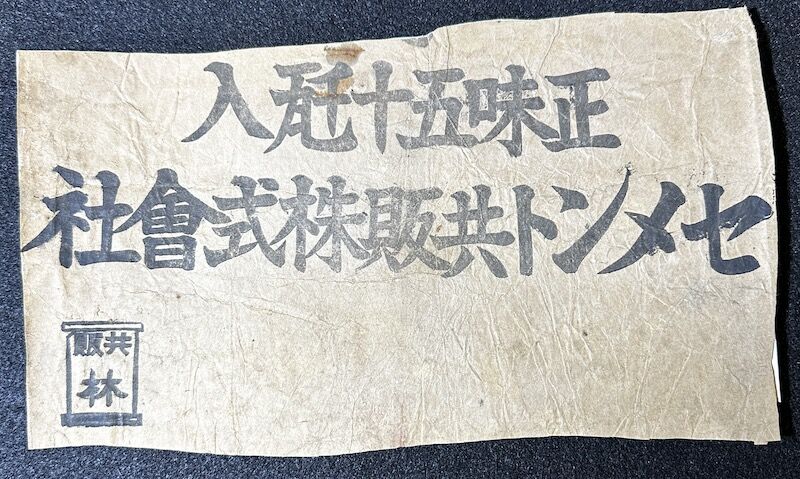 正味五十瓩入
セメント共販株式會社
共販
林